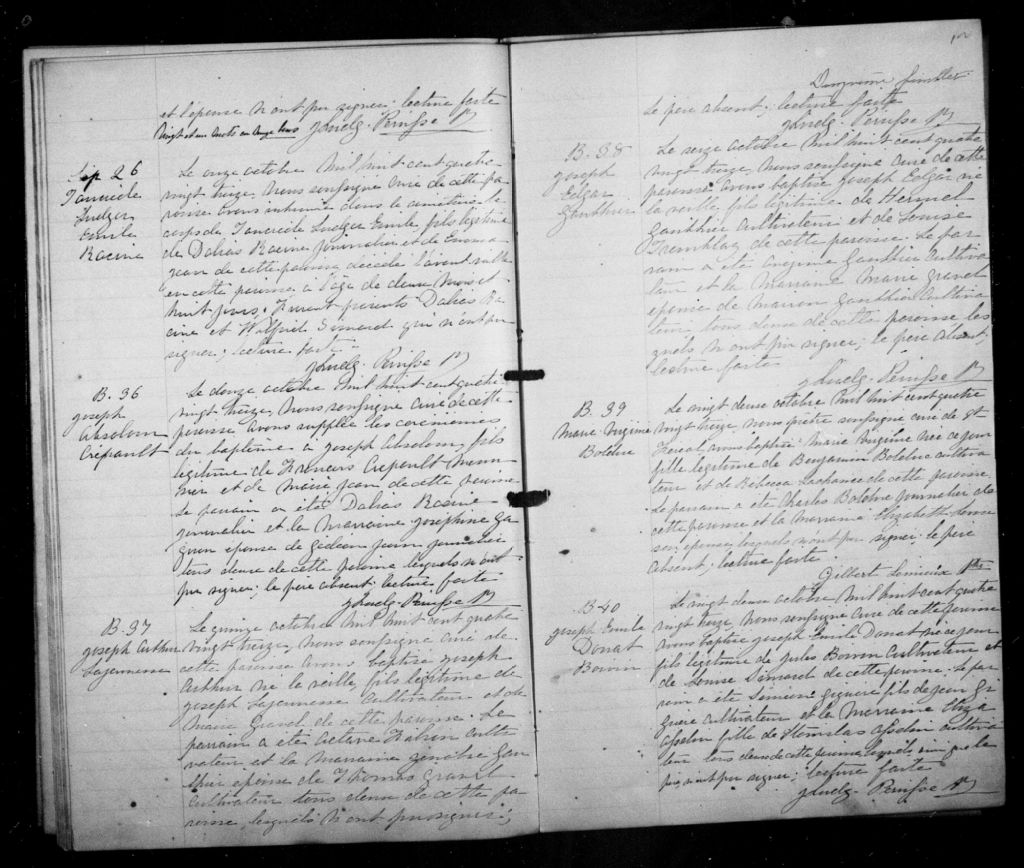 et l'épouse n'ont pu signer. lecture faite
Vingt et un mots en marge bons Jh Ludg. Pérusse Ptr
Sep 26
Tancrède
Ludger
Emile
Racine
Le onze octobre mil huit cent quatre
vingt treize, nous soussigné curé de cette pa
roisse avons inhumé dans le cimetière le
corps de Tancrède Ludger Emile, fils légitime
de Dalias Racine journalier et de Emma
Jean de cette paroisse, décédé l'avant veille
en cette paroisse à l'âge de deux mois et
huit jours. Furent présents Dalias Ra
cine et Wilfrid Simard qui n'ont pu
signer; lecture faite
Jh Ludg. Pérusse Ptr
B. 36
Joseph
Absolom
Crépault
Le douze octobre mil huit cent quatre
vingt treize, nous soussigné curé de cette
paroisse avons suppléé les cérémonies
du baptême à Joseph Absolom, fils
légitime de François Crépault
et de Marie Jean de cette paroisse
Le parrain a été Dalias Racine
journalier et la marraine Joséphine Ga
gnon épouse de Gédéon Jean journalier
tous deux de cette paroisse lesquels n'ont
pu signer. le père absent. lecture faite
Jh Ludg. Pérusse Ptr
B. 37
Joseph Arthur
Lajeunesse
Le quinze octobre mil huit cent quatre
vingt treize, nous soussigné curé de
cette paroisse avons baptisé Joseph
Arthur né la veille, fils légitime de
Joseph Lajeunesse cultivateur et de
Marie Gravel de cette paroisse. Le
parrain a été culti
vateur et la marraine Gau
thier épouse de Thomas Gravel
cultivateur tous deux de cette pa
roisse, lesquels n'ont pu signer;
Douzième feuillet
le père absent; lecture faite
Jh Ludg. Pérusse Ptr
B. 38
Joseph
Edgar
Gauthier
Le seize octobre mil huit cent quatre
vingt treize, nous soussigné curé de cette
paroisse avons baptisé Joseph Edgar né
la veille, fils légitime de
Gauthier cultivateur et de Louise
Tremblay de cette paroisse. Le par
rain a été Onézime Gauthier cultiva
teur et la marraine Marie Gravel
épouse de Gauthier cultiva
teur tous deux de cette paroisse les
quels n'ont pu signer; le père absent;
lecture faite
Jh Ludg. Pérusse Ptr
B. 39
Marie Virginie
Bolduc
Le vingt deux octobre mil huit cent quatre
vingt treize, nous prêtre soussigné curé de St
Féréol, avons baptisé Marie Virginie née ce jour
fille légitime de Benjamin Bolduc cultiva
teur et de Rébecca Lachance de cette paroisse.
Le parrain a été Charles Bolduc journalier de
cette paroisse et la marraine Elizabeth
son épouse lesquels n'ont pu signer; le père
absent; lecture faite.
Gilbert Lemieux Ptre
B 40
Joseph Emile
Donat
Boivin
Le vingt deux octobre mil huit cent quatre
vingt treize, nous soussigné curé de cette paroisse
avons baptisé Joseph Emile Donat né ce jour
fils légitime de Jules Boivin cultivateur et
de Louise Simard de cette paroisse. Le par
rain a été Siméon Giguère fils de Jean Gi
guère cultivateur et la marraine Eliza
Asselin fille de Stanislas Asselin cultiva
teur tous deux de cette paroisse lesquels ainsi que le
père, n'ont pu signer; lecture faite
Jh Ludg. Pérusse Ptr